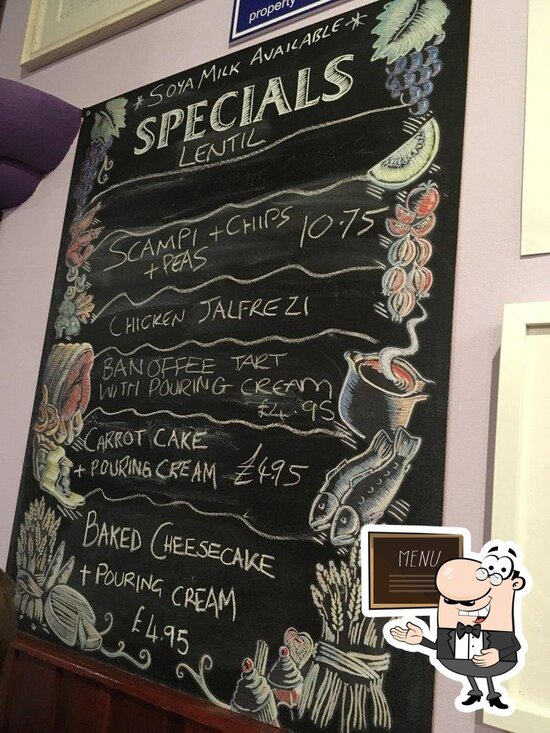 property
* SOYA MILK AVAILABLE *
SPECIALS
LENTIL
SCAMPI + CHIPS 10.75
+ PEAS
CHICKEN JALFREZI
BANOFFEE TART
WITH POURING CREAM
£4.95
CARROT CAKE
+ POURING CREAM £4.95
BAKED CHEESECAKE
+ POURING CREAM
£4.95
MENU